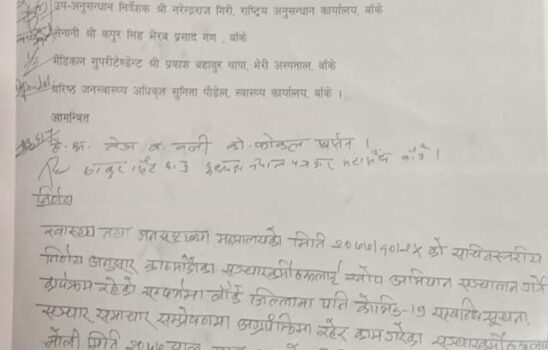 उप-अनुसन्धान निर्देशक श्री नरेन्द्रराज गिरी, राष्ट्रिय अनुसन्धान कार्यालय, बाँके
सेनानी श्री कपुर सिंह भैरब प्रसाद गण , बाँके
मेडिकल सुपरीटेण्डेन्ट श्री प्रकाश बहादुर थापा, भेरी अस्पताल, बाँके
बरिष्ठ जनस्वास्थ्य अधिकृत सुमिता पौडेल, स्वास्थ्य कार्यालय, बाँके ।
आमन्त्रित
तेज ब. वली को.फोकल पर्सन ।
ठाकुर सिंह नेपाल पत्रकार महासंघ बाँके ।
निर्णय
स्वास्थ्य तथा जनसंख्या मन्त्रालयको मिति २०७७।१०।२५ को सचिवस्तरीय
निर्णय अनुसार सञ्चारकर्मीहरूलाई खोप अभियान सञ्चालन गर्ने
कार्यक्रम रहेको सम्बन्धमा बाँके जिल्लामा पनि कोभिड-19 सम्बन्धि सूचना,
सञ्चार समाचार सम्प्रेषणमा अग्रपंक्तिमा रहेर काम गरेका सञ्चारकर्मीहरूलाई
मिति २०७७